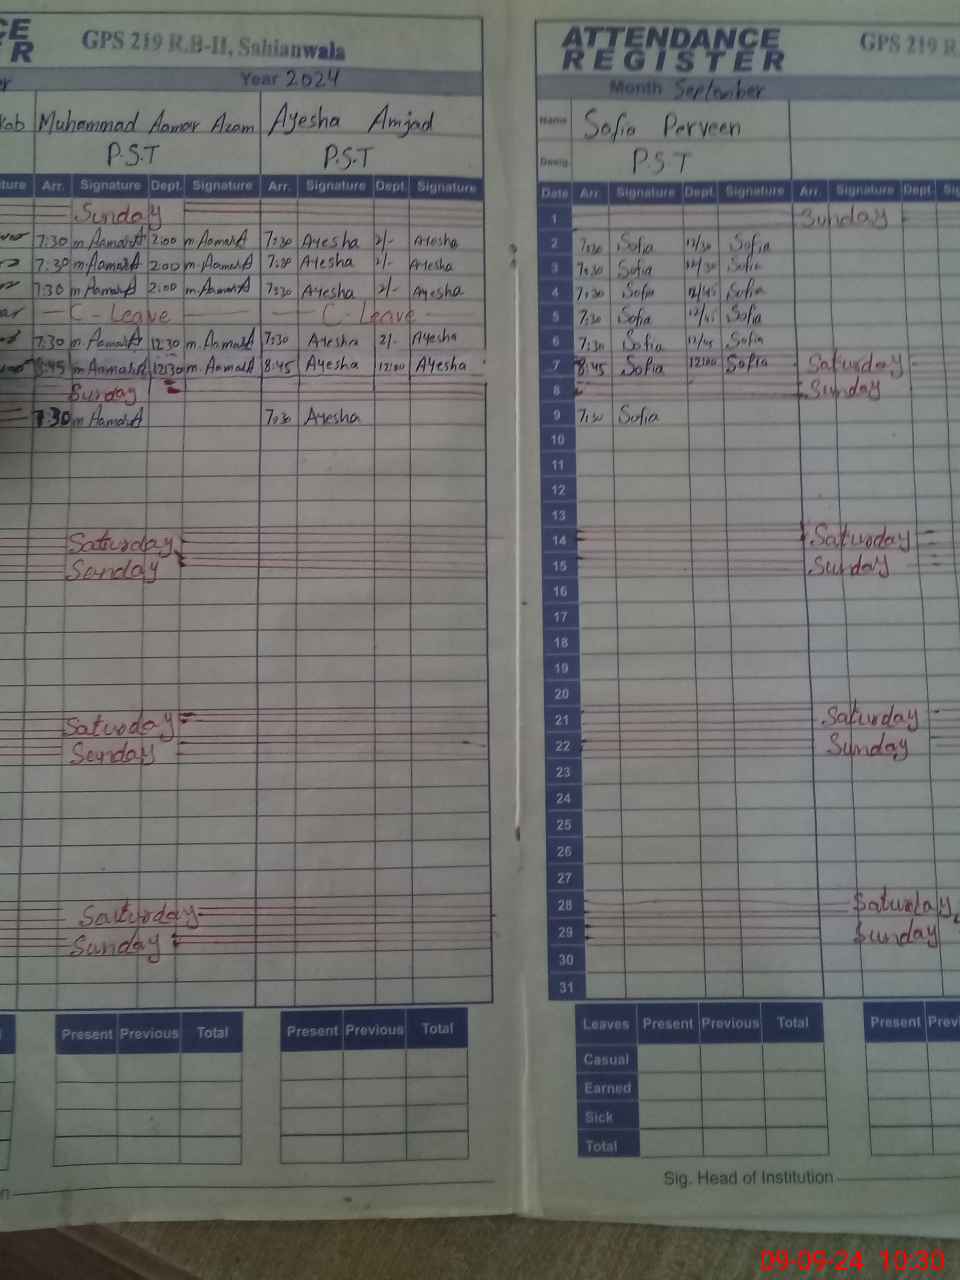 CE
ER
GPS 219 R.B-II, Sahianwala
Year 2024
Kab Muhammad Aamar Azam Ayesha Amjad
P.S.T P.S.T
ture Arr. Signature Dept. Signature Arr. Signature Dept. Signature
Sunday
7:30 m.AamarA 2:00 m.AamarA 7:30 Ayesha 2/- Ayesha
7:30 m.AamarA 2:00 m.AamarA 7:30 Ayesha 2/- Ayesha
7:30 m.AamarA 2:00 m.AamarA 7:30 Ayesha 2/- Ayesha
C-Leave C-Leave
7:30 m.AamarA 12:30 m.AamarA 7:30 Ayesha 2/- Ayesha
8:45 m.AamarA 12:30 m.AamarA 8:45 Ayesha 12:00 Ayesha
Sunday
7:30 m AamarA 7:30 Ayesha
Saturday
Sunday
Saturday
Sunday
Saturday
Sunday
Present Previous Total Present Previous Total
ATTENDANCE
REGISTER
GPS 219 R
Month September
Name Sofia Perveen
Desig. P.S.T
Date Arr. Signature Dept. Signature Arr. Signature Dept. Sig
1 Sunday
2 7:30 Sofia 12/30 Sofia
3 7:30 Sofia 12/30 Sofia
4 7:30 Sofia 12/45 Sofia
5 7:30 Sofia 12/45 Sofia
6 7:30 Sofia 12/45 Sofia
7 8:45 Sofia 12:00 Sofia Saturday
8 Sunday
9 7:30 Sofia
10
11
12
13
14 Saturday
15 Sunday
16
17
18
19
20
21 Saturday
22 Sunday
23
24
25
26
27
28 Saturday
29 Sunday
30
31
Leaves Present Previous Total Present Previ
Casual
Earned
Sick
Total
Sig. Head of Institution
09-09-24 10:30